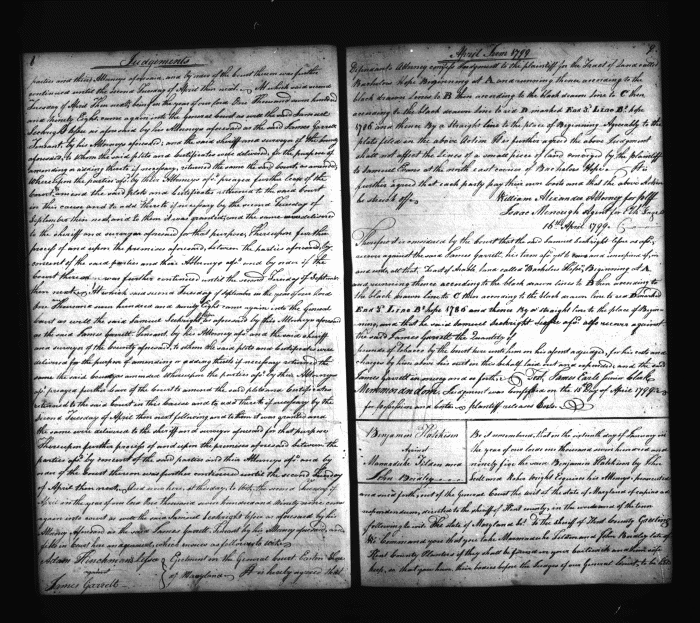 Judgements
parties and their Attorneys aforesaid, and by order of the Court thereon was further
continued until the second Tuesday of April then next. At which said second
Tuesday of April then next in the year of our Lord One Thousand seven hundred
and Ninety Eight came again into the General Court as well the said Samuel
Seekright lessee as aforesaid by his Attorney aforesaid as the said James Garrett
Tenant by his Attorney aforesaid, and the said sheriff and surveyor of the county
aforesaid, to whom the said plots and Certificates were delivered, for the purpose of
amending or adding thereto if necessary, returned the same the said Courts as amended,
Whereupon the parties aforesaid by their Attorneys afsd. prayed further leave of the
Court to amend the said plots and Certificates returned to the said Court
in this cause and to add thereto if necessary by the second Tuesday of
September then next, and to them it was granted, and the same were delivered
to the sheriff and surveyor aforesaid for that purpose, Thereupon further
process of and upon the premises aforesaid, between the parties aforesaid, by
consent of the said parties and their Attorneys afsd. and by order of the
Court thereon was further continued until the second Tuesday of September
then next. At which said second Tuesday of September in the year of our Lord
One Thousand seven hundred and ninety eight came again into the General
Court as well the said Samuel Seekright lessee aforesaid by his Attorney aforesaid
as the said James Garrett Tenant, by his Attorney afsd. and the said sheriff
and surveyor of the County aforesaid, to whom the said plots and Certificates were
delivered for the purpose of amending or adding thereto if necessary returned the
same the said as amended whereupon the parties afsd. by their Attorneys
afsd. prayed further leave of the Court to amend the said plots and Certificates
returned to the said Court in this cause and to add thereto if necessary by the
second Tuesday of April then next following and to them it was granted and
the same were delivered to the sheriff and surveyor aforesaid for that purpose
Thereupon further process of and upon the premises aforesaid between the
parties afsd. by consent of the said parties and their Attorneys afsd. and by
order of the Court thereon was further continued until the second Tuesday
of April then next. And now here, at this day, to wit, the second Tuesday of
April in the year of our Lord One Thousand seven hundred and ninety nine came
again into Court as well the said Samuel Seekright lessee as aforesaid by his
Attorney aforesaid as the said James Garrett Tenant by his Attorney aforesaid, and
files in Court here an agreement, which is as follows to wit
Adam Hinchman's lessee
against
James Garrett
Ejectment in the General Court Eastern Shore
of Maryland. It is hereby agreed that
April Term 1799
Defendants Attorney confess Judgement to the plaintiff for the Tract of Land called
Bachelors Hope Beginning at A and running thence according to the
black drawn lines to B then according to the black drawn line to C then
according to the black drawn line to red D marked
1786 and thence By a straight line to the place of Beginning Agreeably to the
plots filed in the above Action. It is further agreed the above Judgement
shall not affect the lines of a small piece of land conveyed by the plaintiff
to Samuel Comes at the north east corner of Bachelors Hope. It is
further agreed that each party pay their own Costs and that the above action
be struck off.
William Attorney for plff
Isaac Agent for
16th April 1799.
Therefore it is considered by the Court that the said Samuel Seekright lessee as afsd.
recover against the said James Garrett, his term afsd. yet to come and unexpired of in
and unto all that Tract of Arable land called Bachelors Hope, Beginning at A
and running thence according to the black drawn lines to B then according to
the black drawn line to C then according to the black drawn line to red D marked
1786 and thence By a straight line to the place of Beginning,
and that he said Samuel Seekright lessee afsd. also recover against
the said James Garrett the Quantity of
pounds of Tobacco by the Court here unto him on his assent adjudged, for his costs and
charges by him about his suit in this behalf laid out and expended; and the said
James Garrett in mercy and so forth. Test, James Earle junior Clerk
Memorandum Judgement was confessed on the 16th Day of April 1799
for possession and Costs. plaintiff releases Costs.
Benjamin Hatcheson
against
Marmaduke Tilden and
John Bradley
Be it remembered, that on the sixteenth day of January in
the year of our Lord one thousand seven hundred and
ninety five the said Benjamin Hatcheson by John
Scott and Robin Wright Esquires his Attorneys, prosecuted
and sued forth, out of the General Court the writ of the State of Maryland of capias ad
respondendum, directed to the sheriff of Kent County, in the words and of the tenor
following to wit The State of Maryland to the Sheriff of Kent County Greeting
We Command you that you take Marmaduke Tilden and John Bradley late of
Kent County if they shall be found in your bailiwick and them safely
keep, so that you have their bodies before the Judges of our General Court, to be held